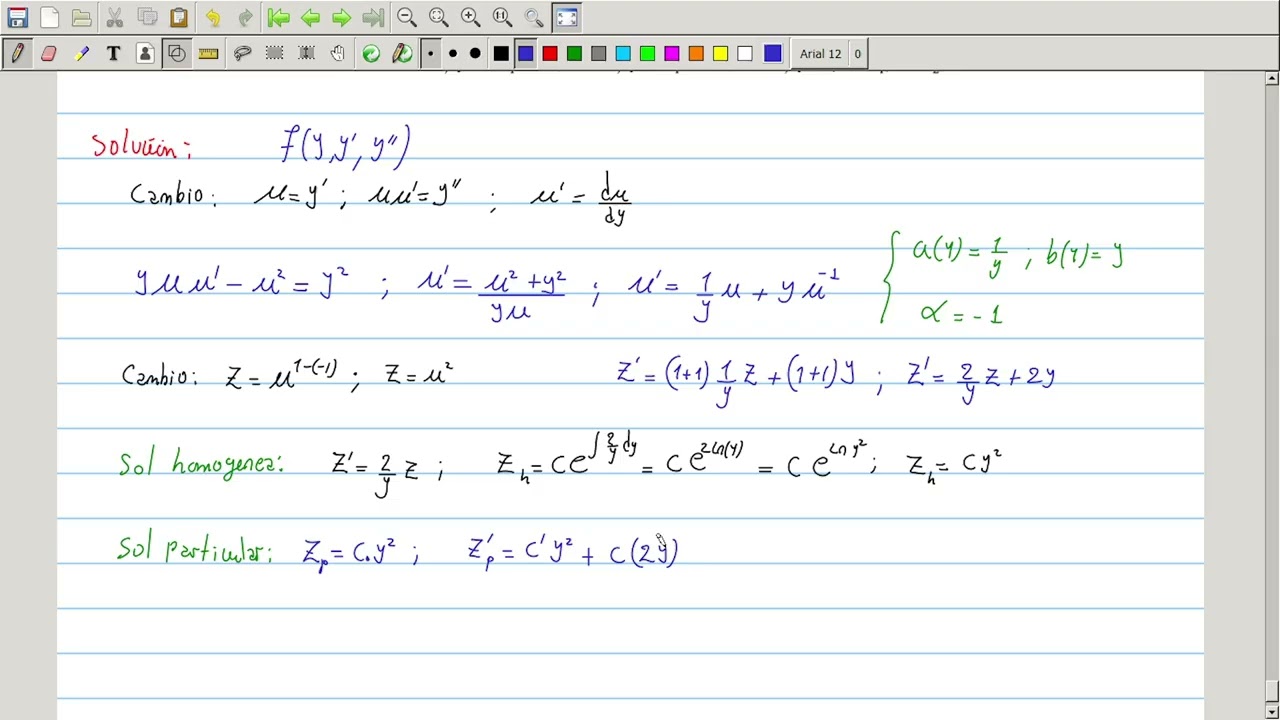 Arial 12 0
Solución: f(y,y',y'')
Cambio: u=y' ; uu'=y'' ; u' = du/dy
yuu' - u² = y² ; u' = (u²+y²)/(yu) ; u' = 1/y u + y u⁻¹ { a(y) = 1/y ; b(y) = y
α = -1
Cambio: Z = u^(1-(-1)) ; Z = u² Z' = (1+1) 1/y Z + (1+1) y ; Z' = 2/y Z + 2y
Sol homogenea: Z' = 2/y Z ; Z_h = C e^(∫ 2/y dy) = C e^(2Ln(y)) = C e^(Ln y²) ; Z_h = C y²
Sol particular: Z_p = C.y² ; Z'_p = C' y² + C(2y)